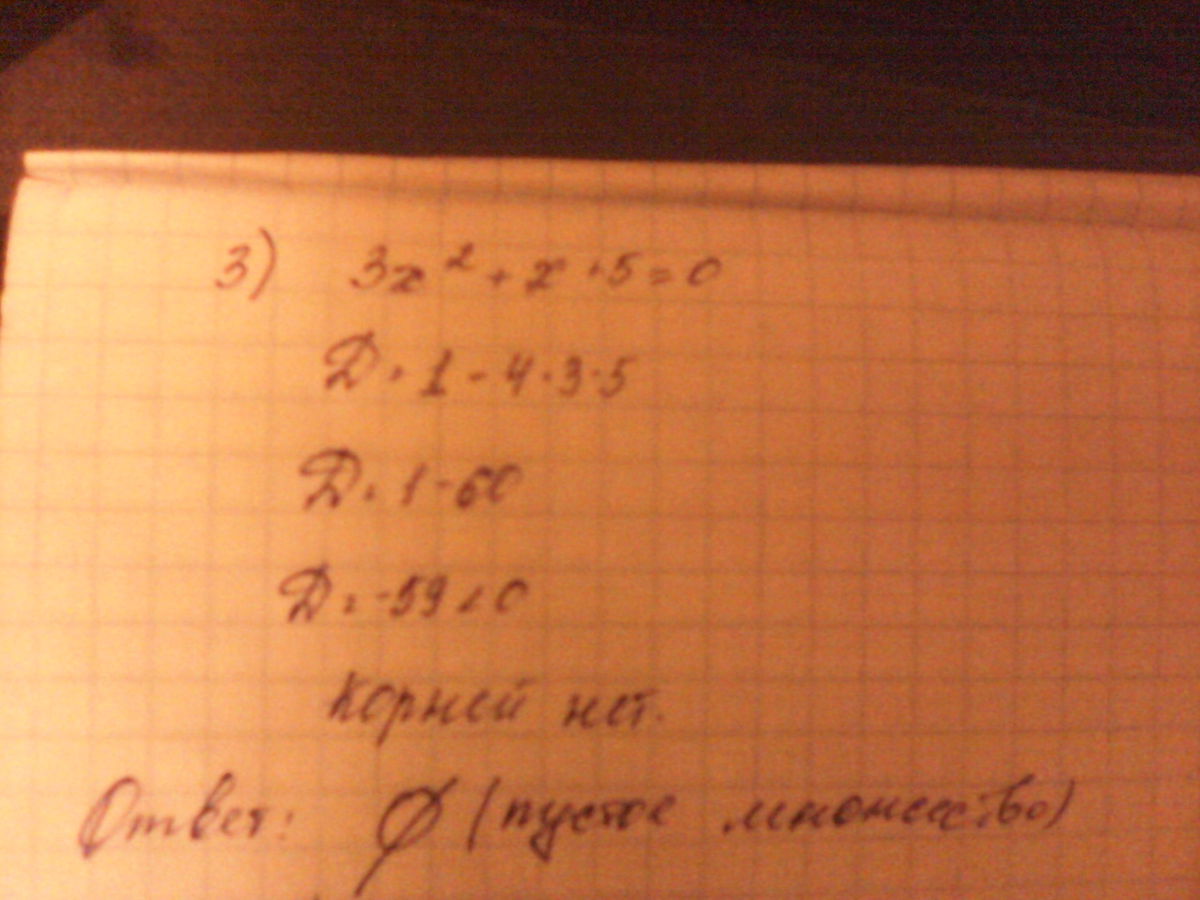 3) 3x² + x + 5 = 0
D = 1 - 4·3·5
D = 1 - 60
D = -59 < 0
корней нет.
Ответ: ∅ (пустое множество)